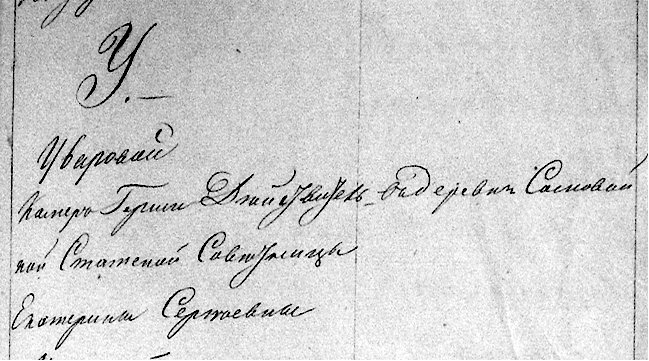 У.
Уваровой
Камеръ Гершы Дѣйствитель- бъ деревни Сосновой
ной Статской Совѣтницы
Екатерины Сергѣевны